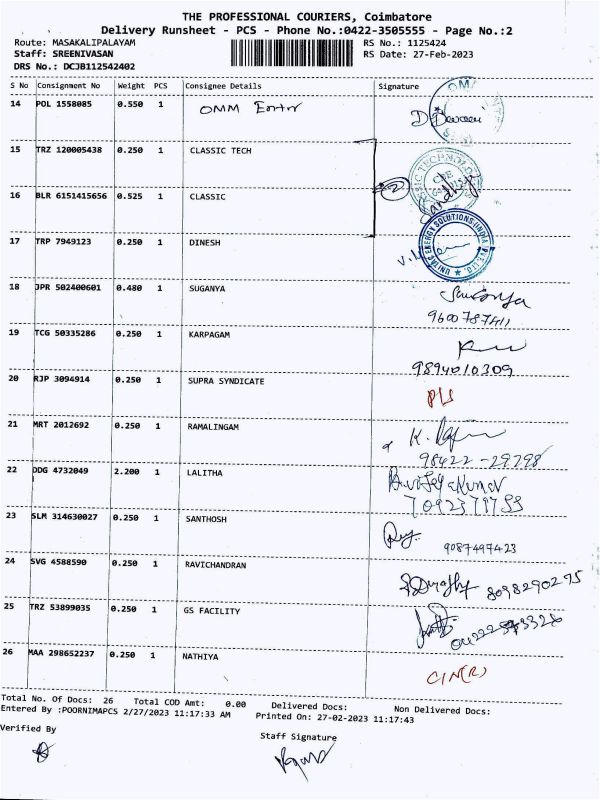 THE PROFESSIONAL COURIERS, Coimbatore
Delivery Runsheet - PCS - Phone No.:0422-3505555 - Page No.:2
Route: MASAKALIPALAYAM RS No.: 1125424
Staff: SREENIVASAN RS Date: 27-Feb-2023
DRS No.: DCJB112542402
S No Consignment No Weight PCS Consignee Details Signature
14 POL 1558085 0.550 1 OMM
15 TRZ 120005438 0.250 1 CLASSIC TECH
16 BLR 6151415656 0.525 1 CLASSIC 2
17 TRP 7949123 0.250 1 DINESH
UNITAC ENERGY SOLUTIONS (INDIA) PVT. LTD.
18 JPR 502400601 0.480 1 SUGANYA
9600787411
19 TCG 50335286 0.250 1 KARPAGAM
9894010309
20 RJP 3094914 0.250 1 SUPRA SYNDICATE
21 MRT 2012692 0.250 1 RAMALINGAM
98422-29798
22 DDG 4732049 2.200 1 LALITHA
23 SLM 314630027 0.250 1 SANTHOSH
9087497423
24 SVG 4588590 0.250 1 RAVICHANDRAN
8098290295
25 TRZ 53899035 0.250 1 GS FACILITY
26 MAA 298652237 0.250 1 NATHIYA
C/N(R)
Total No. Of Docs: 26 Total COD Amt: 0.00 Delivered Docs: Non Delivered Docs:
Entered By :POORNIMAPCS 2/27/2023 11:17:33 AM Printed On: 27-02-2023 11:17:43
Verified By
Staff Signature